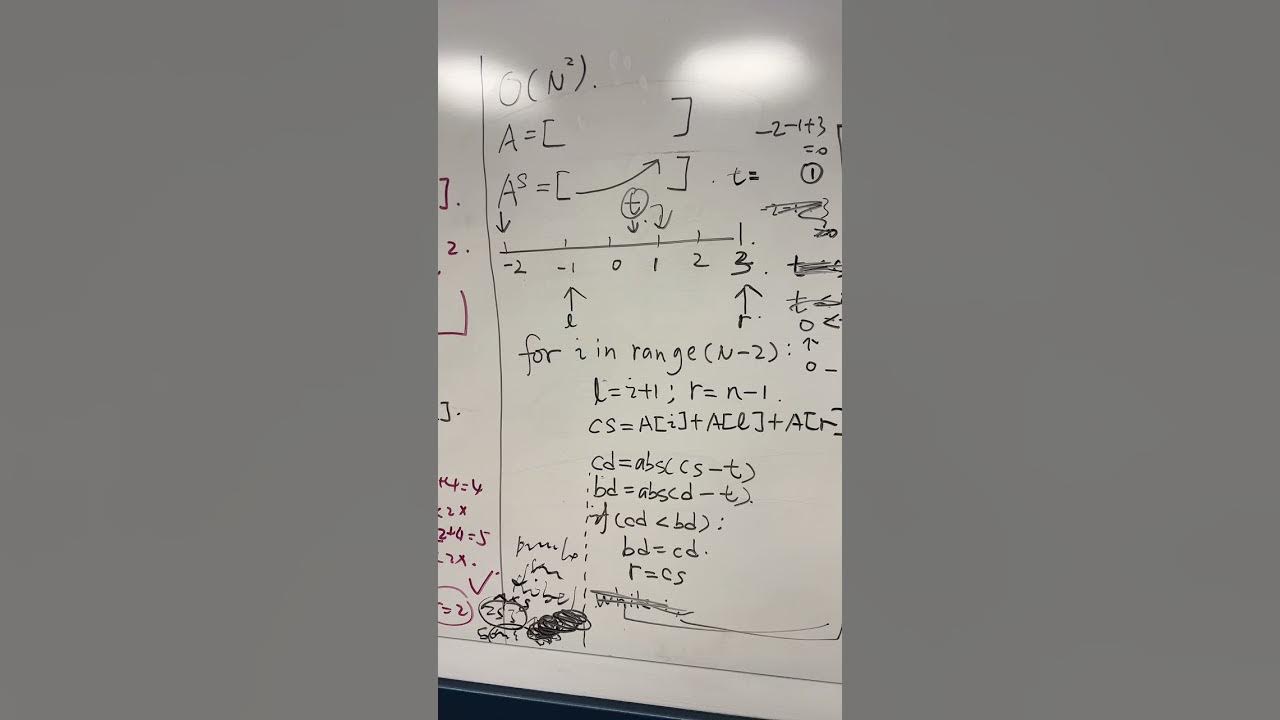 O(N²).
A=[ ]
Aˢ=[ ] . t=
t
-2 -1 0 1 2 3.
l r.
for i in range(N-2):
l=i+1; r=n-1.
cs=A[i]+A[l]+A[r]
cd=abs(cs-t)
bd=abs(d-t).
if(cd<bd):
bd=cd.
r=cs
-2-1+3
=0
1
0<
0-
].
2.
].
+4=4
<2x
2+0=5
<2x.
=2